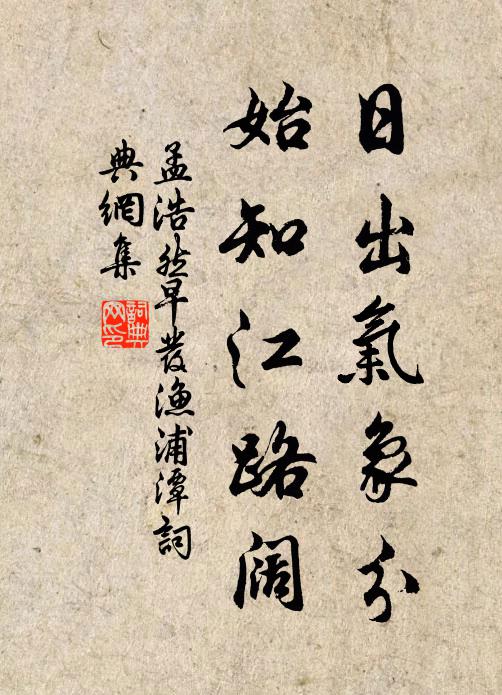 日出氣象分
始知江路阔
孟浩然早發漁浦潭詞
典網集
詞典
网印